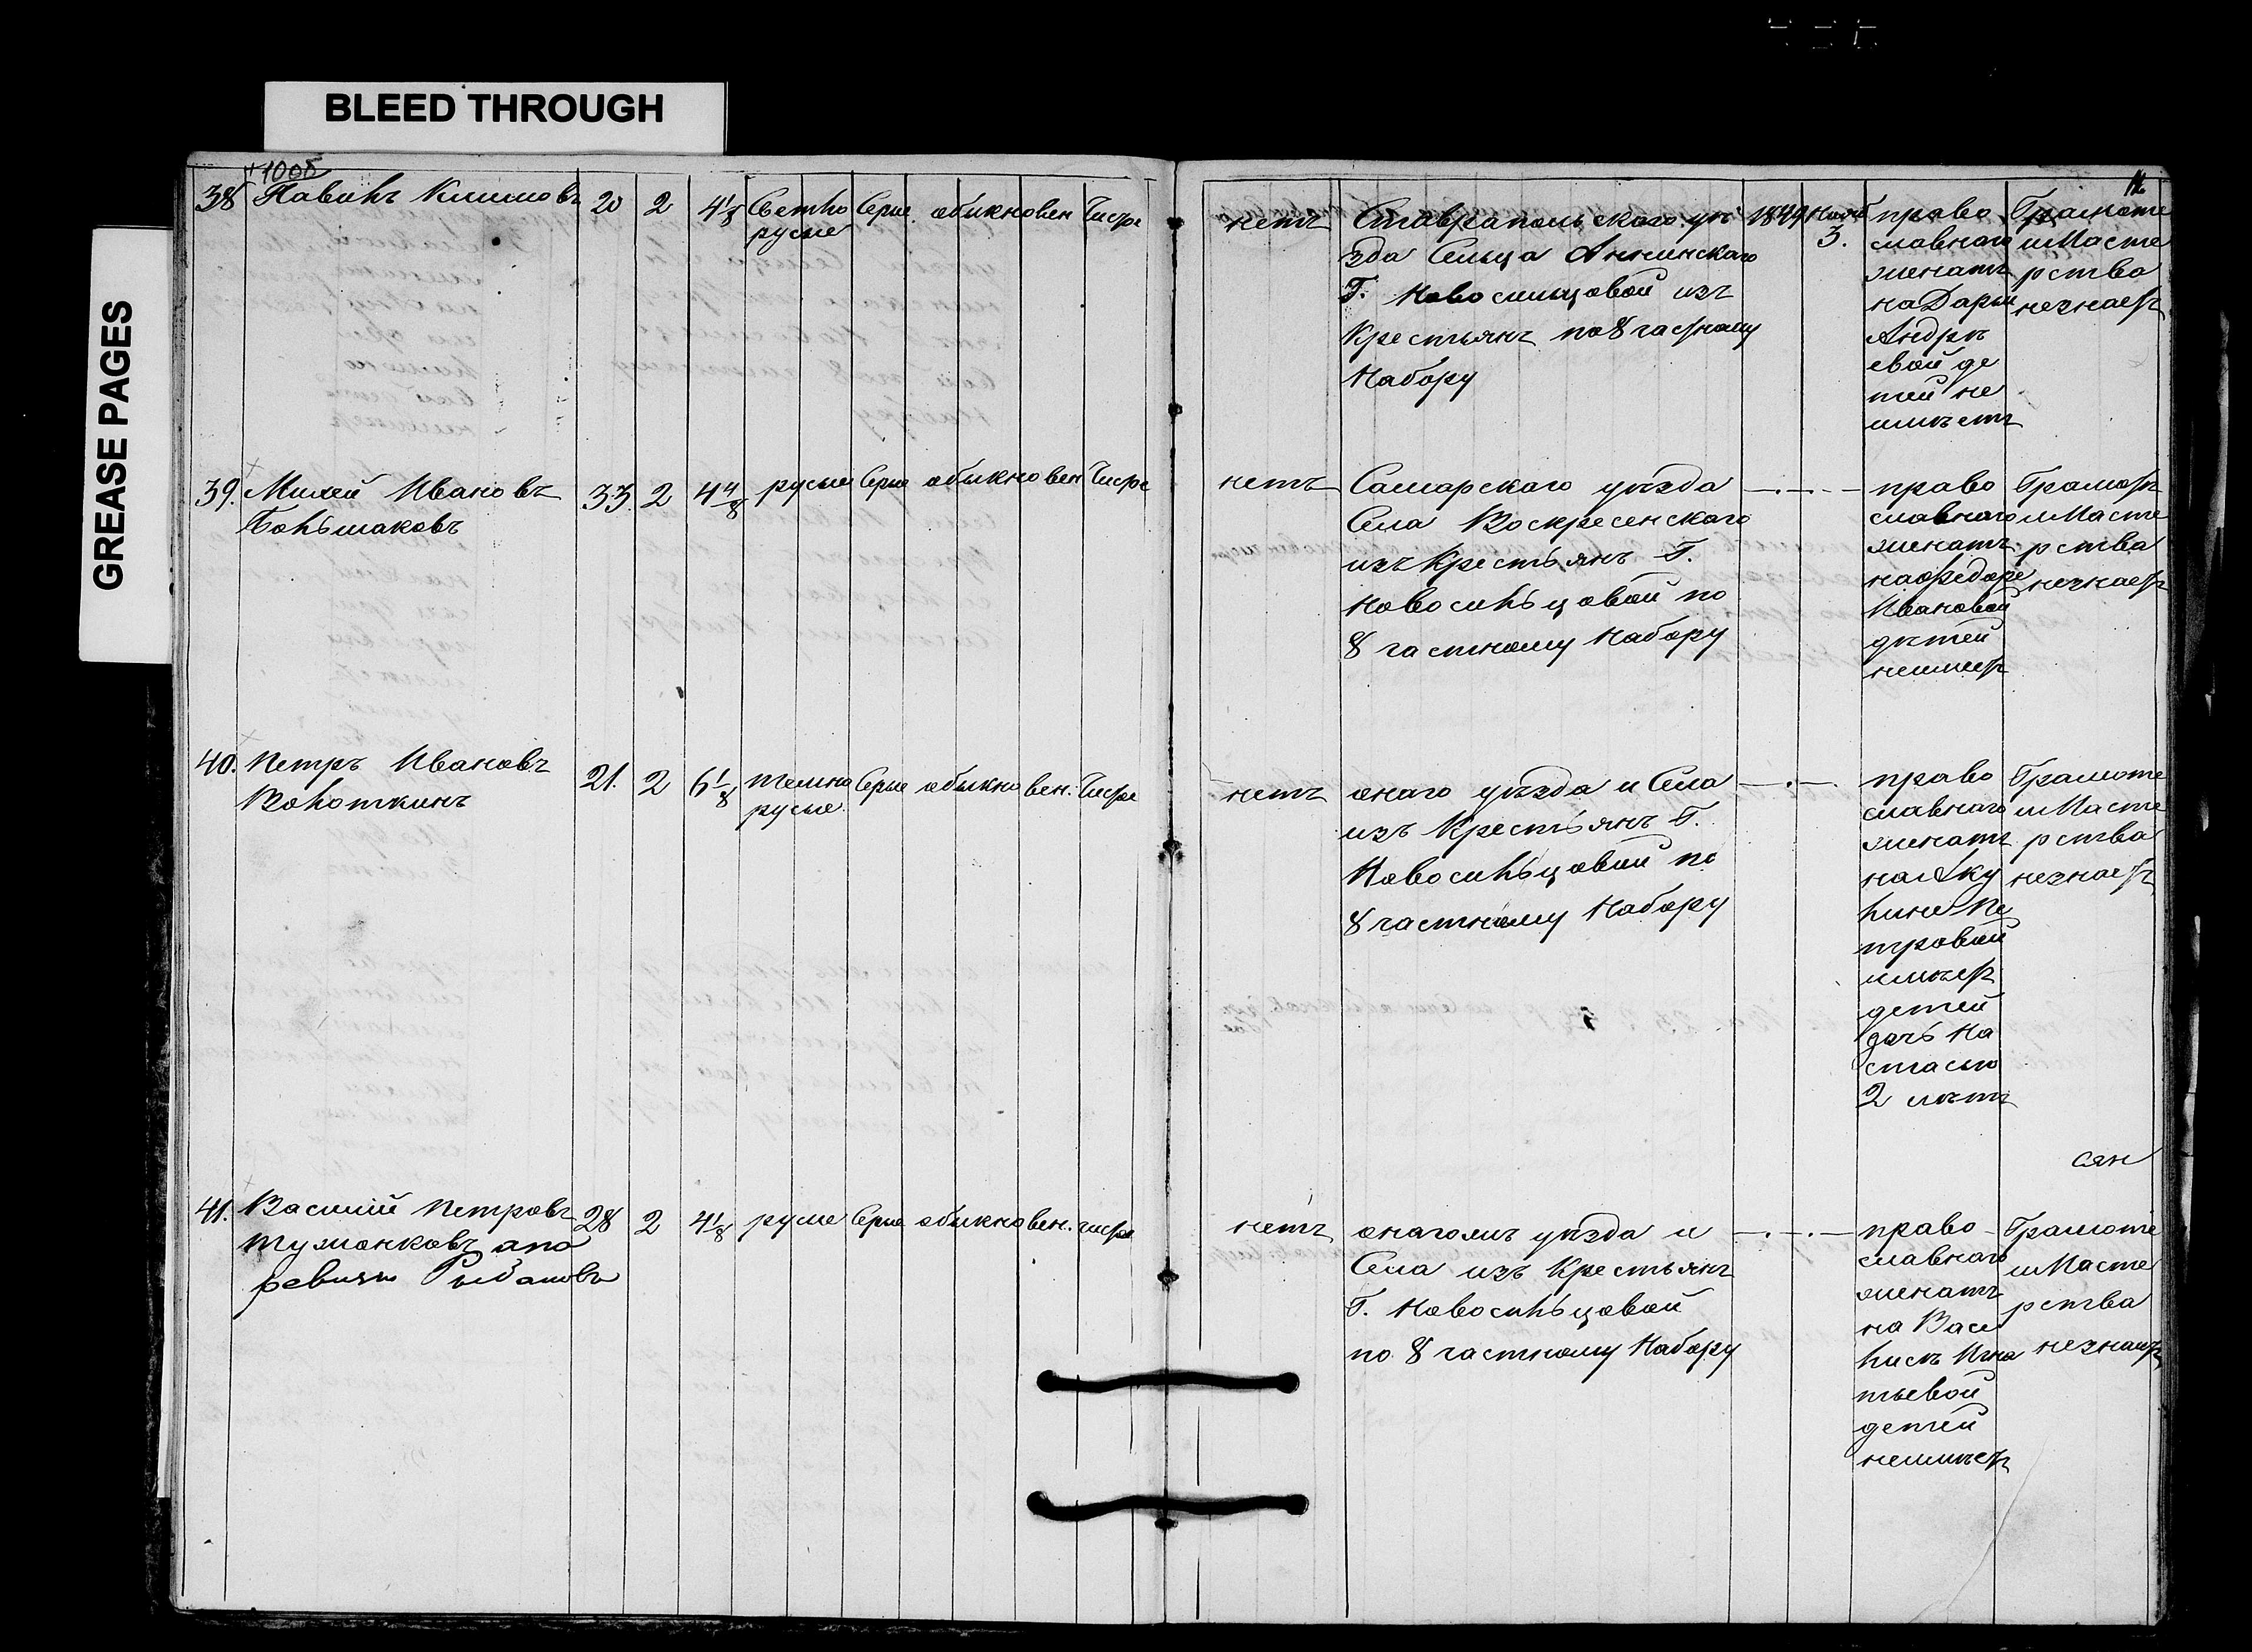 BLEED THROUGH
GREASE PAGES
10об
38 Павилъ Климовъ 20 2 4 1/8 Светло Серые обыкновен Чистое
русые
39. Михей Ивановъ 33 2 4 4/8 русыи Серые обыкновен Чистое
Большаковъ
40. Петръ Ивановъ 21. 2 6 1/8 темно Серые обыкновен. Чистое
Волоткинъ русые
41. Василий Петровъ 28 2 4 1/8 русые Серые обыкновен. чистое
тумонковъ апо
ревизи
11
нетъ Ставрапольского уѣ 1849 Нояб 3.
зда Сельца Аннинскаго
Г. Новосильцовой изъ
Крестьянъ по 8 частному
Набору
право
славнаго
женатъ
на Дарьи
Андрѣ
евой де
тей не
имѣетъ
Грамоте
иМасте
рства
незнаетъ
нетъ Самарского уѣзда
Села Воскресенскаго
изъ Крестьянъ Г.
Новосильцовой по
8 частному Набору
право
славнаго
женатъ
на Федоре
Ивановой
дѣтей
неимеетъ
Грамотѣ
иМасте
рства
незнаетъ
нетъ онаго уѣзда и Села
изъ Крестьянъ Г.
Новосильцовой по
8 частному Набору
право
славнаго
женатъ
на Аку
лине Пе
тровой
имѣетъ
детей
дочь На
стасью
2 летъ
Грамоте
иМасте
рства
незнаетъ
нетъ онагомъ уѣзда и
Села изъ Крестьянъ
Г. Новосильцовой
по 8 частному Набору
право
славнаго
женатъ
на Васи
лисѣ Игна
тьевой
детей
неимѣетъ
Грамоте
иМасте
рства
незнаетъ